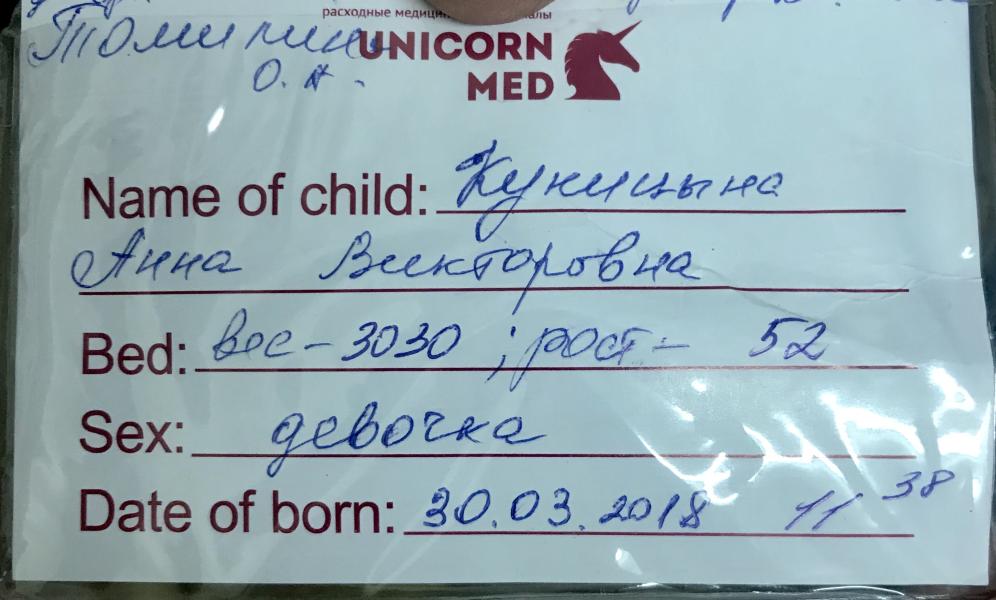 расходные медици алы
UNICORN
MED
О.А.
Name of child: Куницына
Анна Викторовна
Bed: вес - 3030 ; рост - 52
Sex: девочка
Date of born: 30.03.2018 11 38